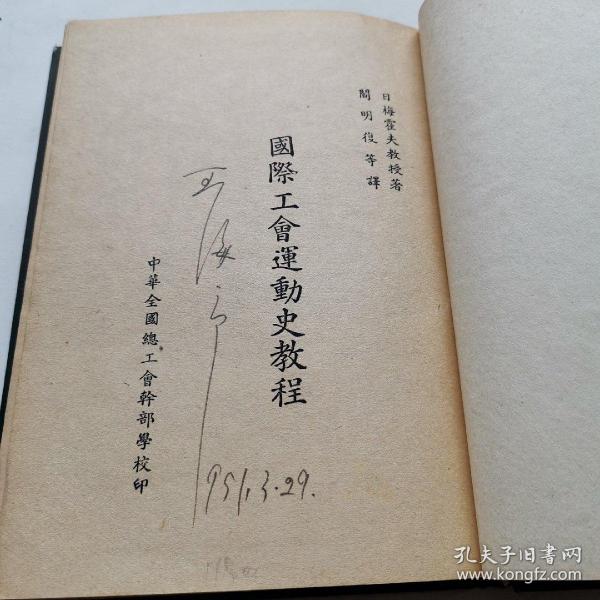 日梅霍夫教授著
閻明復等譯
國際工會運動史教程
王海
中華全國總工會幹部學校印
1951.3.29.
孔夫子旧书网
www.kongfz.com